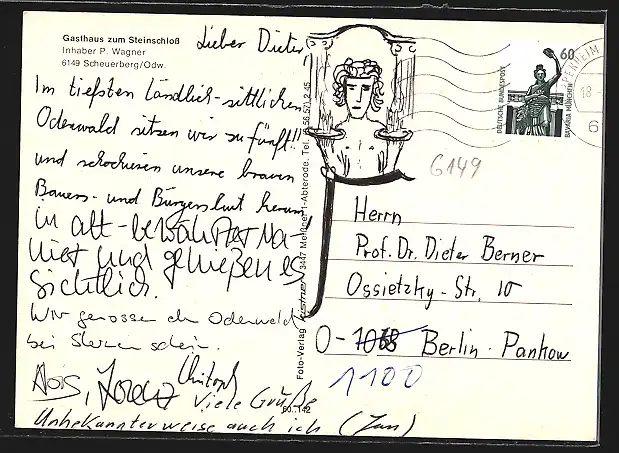 Gasthaus zum Steinschloß
Inhaber P. Wagner
6149 Scheuerberg/Odw.
Lieber Dieter,
Im tiefsten ländlich-sittlichen
Odenwald sitzen wir zu fünft!!
und schockieren unsere braven
Bauers- und Bürgersleut herum
in alt-bewährter Ma-
nier und genießen es
sichtlich.
Wir genossen den Odenwald
bei Sternenschein.
Christoph
Viele Grüße
Unbekannterweise auch ich (Jan)
Foto-Verlag Kistner 3447 Meißner 1-Abterode, Tel.
60.142
60
DEUTSCHE BUNDESPOST
BAVARIA MÜNCHEN
18
6
6149
Herrn
Prof. Dr. Dieter Berner
Ossietzky-Str. 10
O-1068 Berlin-Pankow
1100